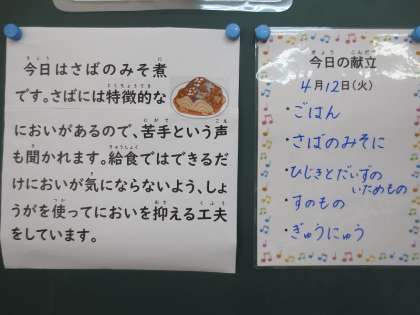 今日はさばのみそ煮
です。さばには特徴的な
においがあるので、苦手という声
も聞かれます。給食ではできるだ
けにおいが気にならないよう、しょ
うがを使ってにおいを抑える工夫
をしています。
今日の献立
4月12日(火)
・ごはん
・さばのみそに
・ひじきとだいずの
いためもの
・すのもの
・ぎゅうにゅう